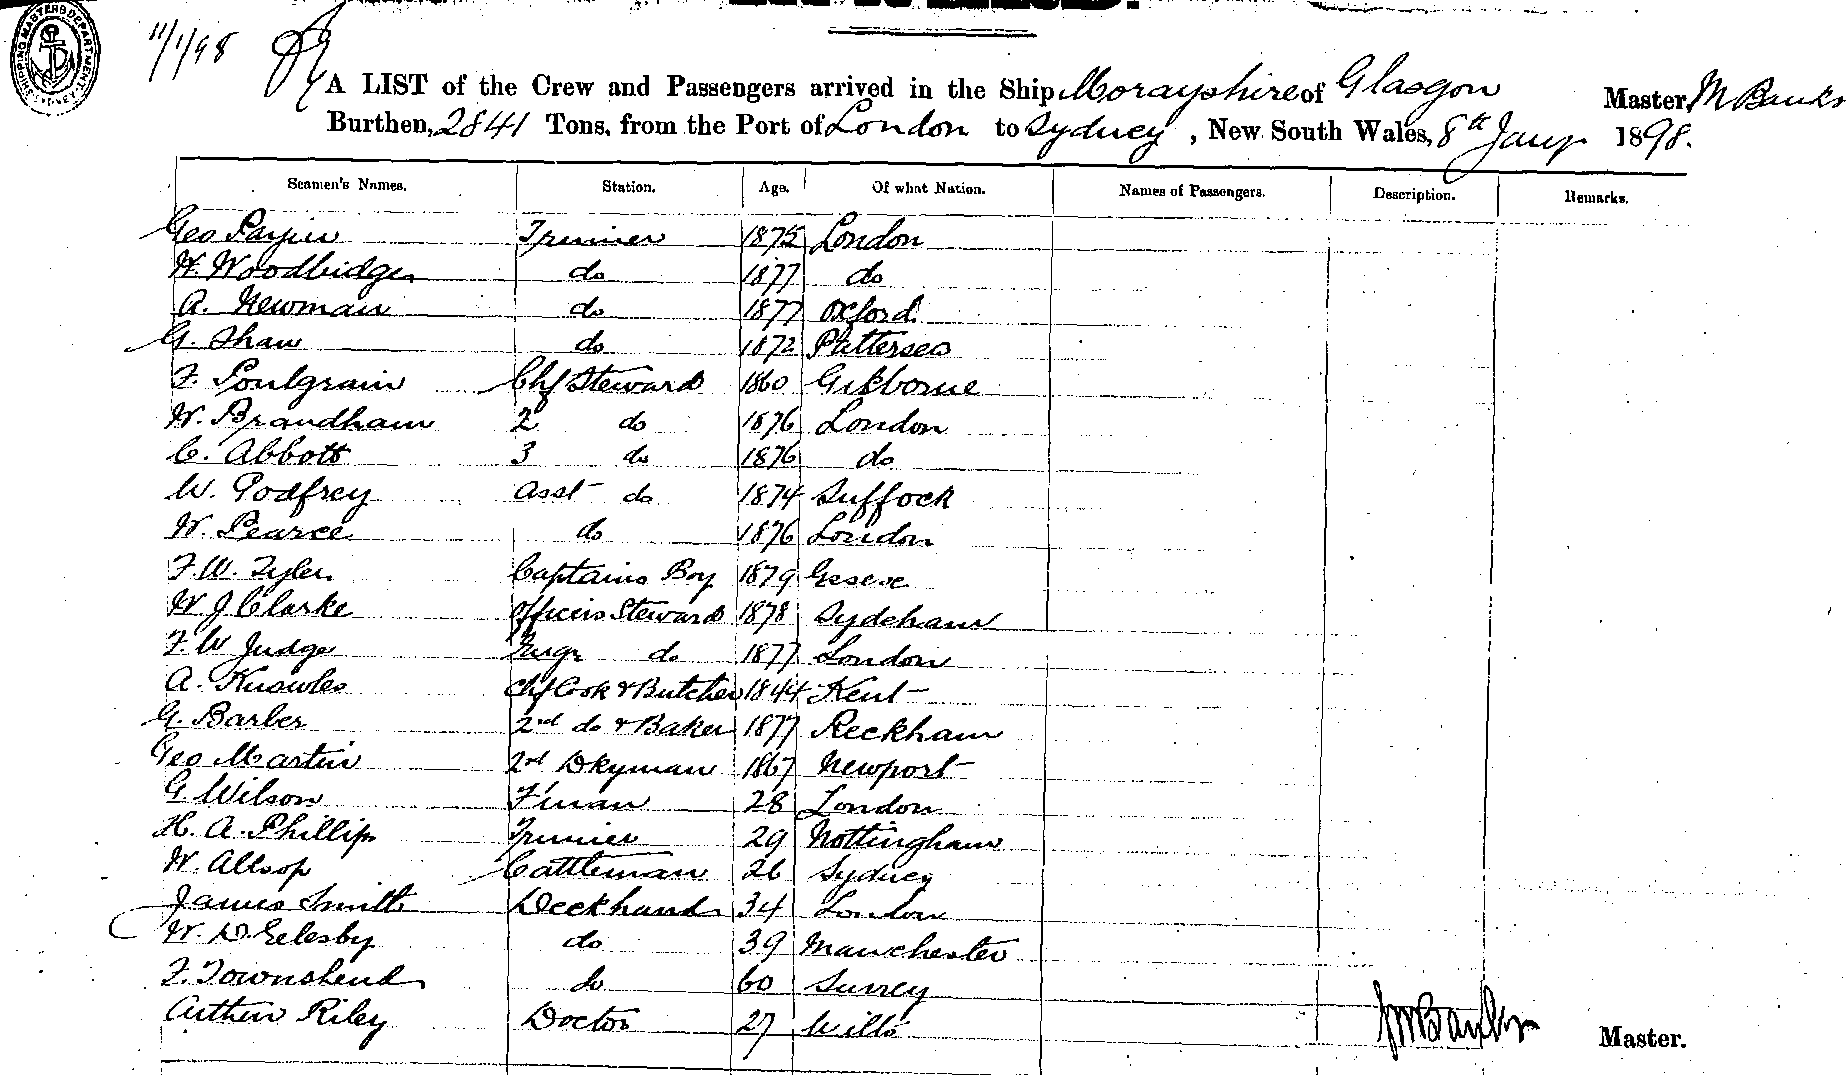 SHIPPING MASTERS DEPARTMENT
SYDNEY
11/1/98
A LIST of the Crew and Passengers arrived in the Ship Morayshire of Glasgow Master, M Banks
Burthen, 2841 Tons, from the Port of London to Sydney, New South Wales, 8th Jany 1898.
Seamen's Names. Station. Age. Of what Nation. Names of Passengers. Description. Remarks.
Geo Trimmer 1875 London
W. Woodbidge do 1877 do
A. Newman do 1877 Oxford
G. Shaw do 1872 Pattersea
F. Poulgrain Chf Steward 1860 Gisborne
W. Brandham 2 do 1876 London
C. Abbott 3 do 1876 do
W. Godfrey Asst do 1874 Suffock
W. Pearce do 1876 London
F. W. Tyler Captains Boy 1879 Essex
W J Clarke Officers Steward 1878 Sydeham
F. W Judge Engr do 1877 London
A. Knowles Chf Cook & Butcher 1844 Kent
G. Barber 2nd do & Baker 1877 Peckham
Geo Martin 2nd Dkyman 1867 Newport
G Wilson F'man 28 London
H. A. Phillips Trimmer 29 Nottingham
W. Allsop Cattleman 26 Sydney
James Smith Deckhand 34 London
W. D. Selesby do 39 Manchester
F. Townshend do 60 Surrey
Arthur Riley Doctor 27 Wilts
J M Banks Master.